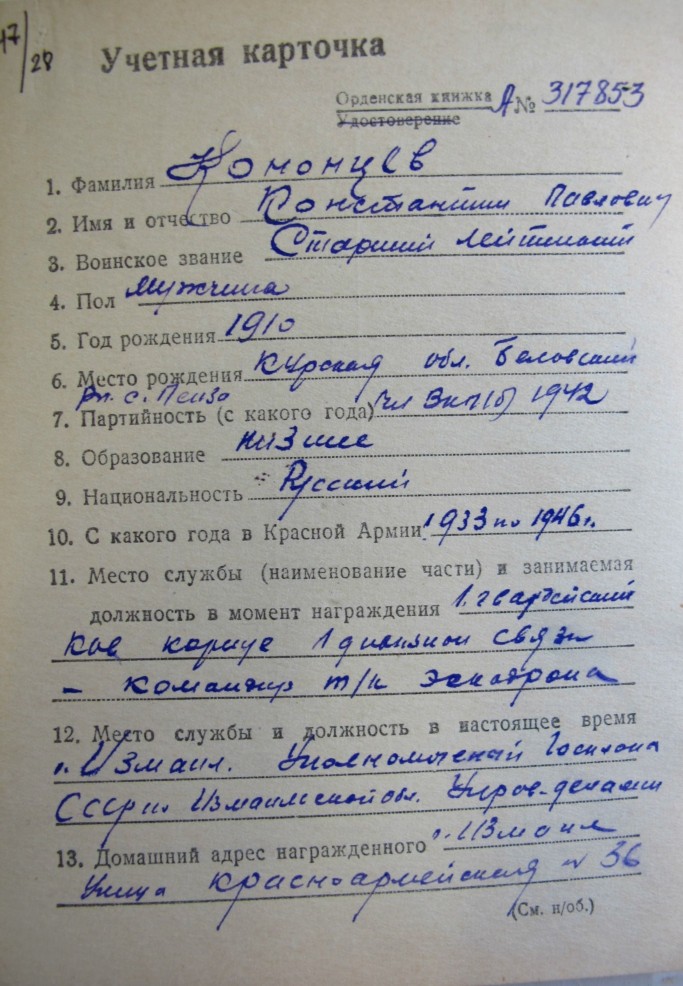 47/28
Учетная карточка
Орденская книжка А № 317853
Удостоверение
1. Фамилия Кононцев
2. Имя и отчество Константин Павлович
3. Воинское звание Старший лейтенант
4. Пол Мужчина
5. Год рождения 1910
6. Место рождения Курская обл. Беловский
рн. с. Пенза
7. Партийность (с какого года) чл ВКП(б) 1942
8. Образование низшее
9. Национальность Русский
10. С какого года в Красной Армии 1933 по 1946 г.
11. Место службы (наименование части) и занимаемая
должность в момент награждения 1. гвардейский
Кав корпус 1 дивизион связи
– командир т/к эскадрона
12. Место службы и должность в настоящее время
г. Измаил. Уполномоченный
СССР по Измаильской обл.
13. Домашний адрес награжденного г. Измаил
Улица Красноармейская № 36
(См. н/об.)